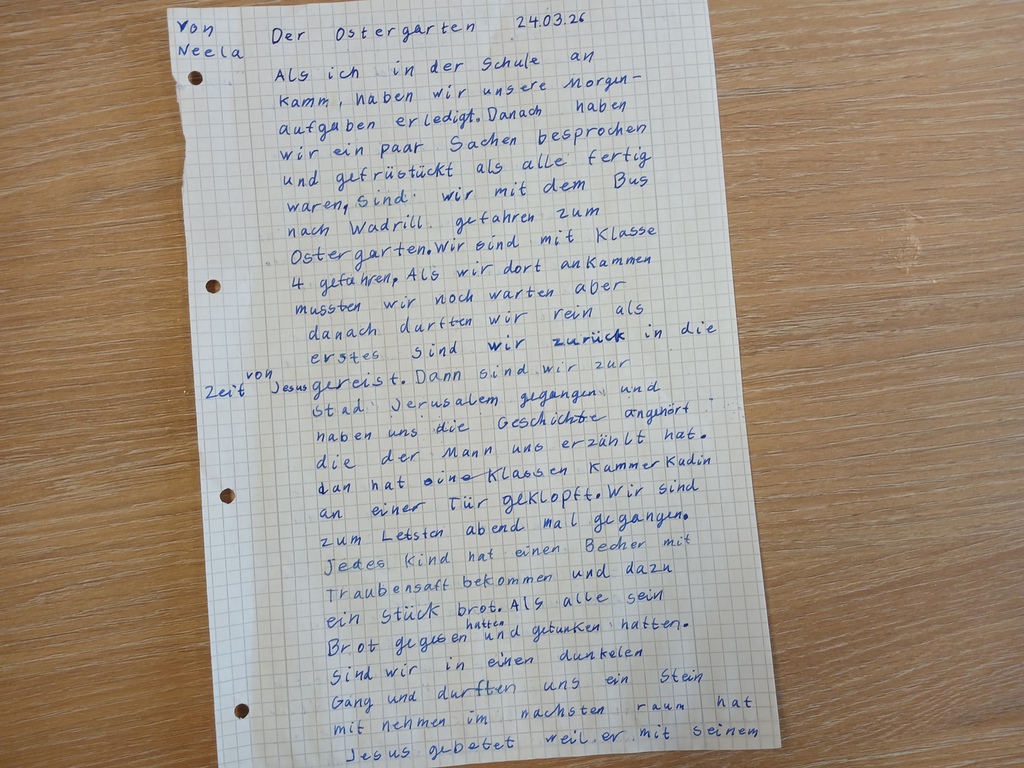 von Der Ostergarten 24.03.26
Neela
Als ich in der Schule an
kamm, haben wir unsere Morgen-
aufgaben erledigt. Danach haben
wir ein paar Sachen besprochen
und gefrüstückt als alle fertig
waren, sind wir mit dem Bus
nach Wadrill gefahren zum
Ostergarten. Wir sind mit Klasse
4 gefahren, Als wir dort ankammen
mussten wir noch warten aber
danach durften wir rein als
erstes sind wir zurück in die
Zeit von Jesus gereist. Dann sind wir zur
Stad Jerusalem gegangen und
haben uns die Geschichte angehört
die der Mann uns erzählt hat.
dan hat eine Klassen Kammerkadin
an einer Tür geklopft. Wir sind
zum Letsten abend mal gegangen.
Jedes Kind hat einen Becher mit
Traubensaft bekommen und dazu
ein Stück brot. Als alle sein
Brot gegesen hatten und getunken hatten.
Sind wir in einen dunkelen
Gang und durften uns ein Stein
mit nehmen im nächsten raum hat
Jesus gebetet weil er mit seinem